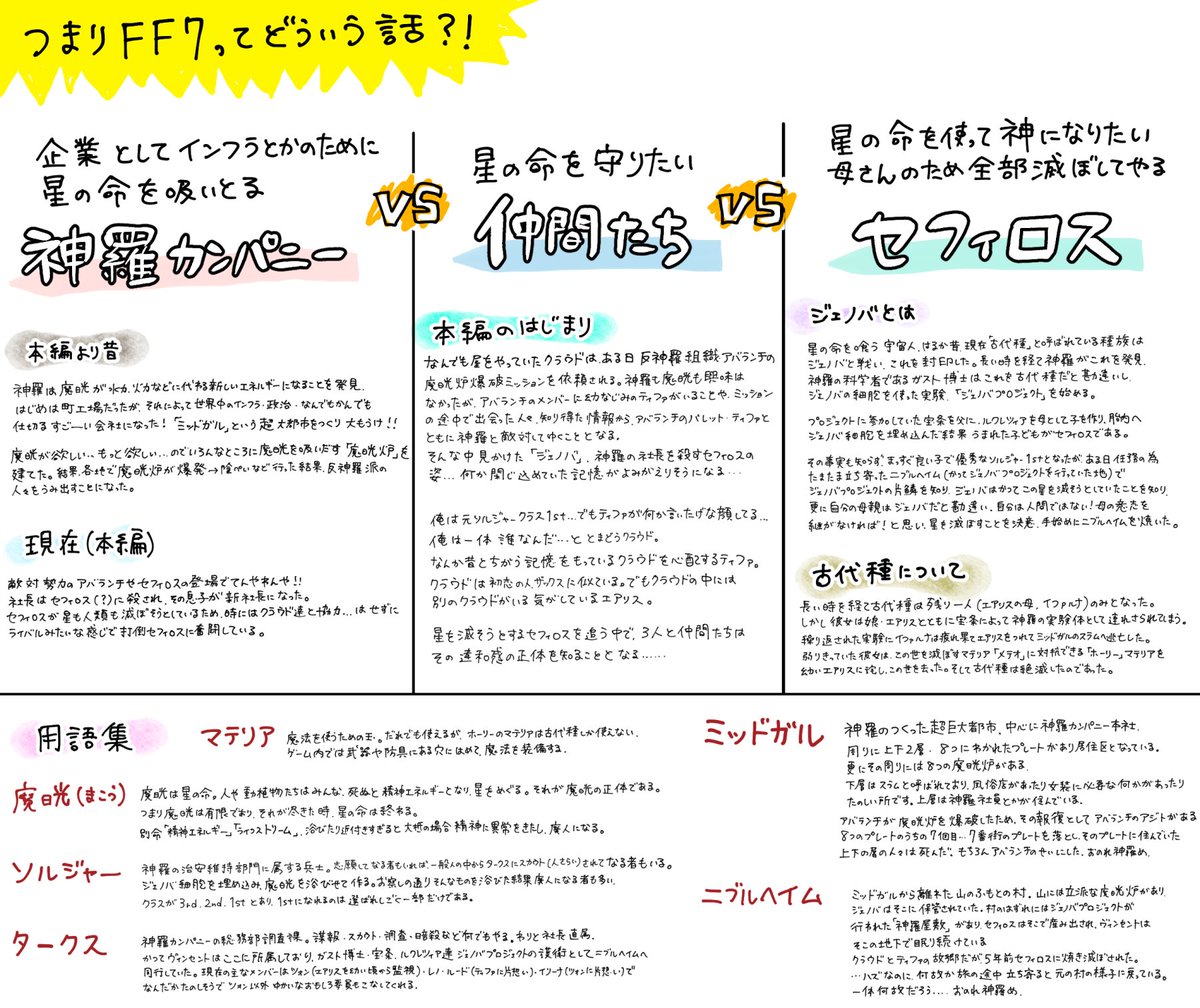 つまりFF7ってどういう話?!
企業としてインフラとかのために
星の命を吸いとる
神羅カンパニー
VS
星の命を守りたい
仲間たち
VS
星の命を使って神になりたい
母さんのため全部滅ぼしてやる
セフィロス
本編より昔
神羅は魔晄が水力、火力などに代わる新しいエネルギーになることを発見。
はじめは町工場だったが、それによって世界中のインフラ・政治・なんでもかんでも
仕切るすごーい会社になった!「ミッドガル」という超大都市をつくり大もうけ!!
魔晄が欲しい…もっと欲しい…のでいろんなところに魔晄を吸いだす「魔晄炉」を
建てた。結果、各地で魔晄炉が爆発→隠ぺいなど行った結果、反神羅派の
人々をうみ出すことになった。
現在(本編)
敵対勢力のアバランチやセフィロスの登場でてんやわんや!!
社長はセフィロス(?)に殺され、その息子が新社長になった。
セフィロスが星も人類も滅ぼそうとしているため、時にはクラウド達と協力…はせずに
ライバルみたいな感じで打倒セフィロスに奮闘している。
本編のはじまり
なんでも屋をやっていたクラウドは、ある日反神羅組織アバランチの
魔晄炉爆破ミッションを依頼される。神羅も魔晄も興味は
なかったが、アバランチのメンバーに幼なじみのティファがいることや、ミッション
の途中で出会った人々、知り得た情報から、アバランチのバレット・ティファと
ともに神羅と敵対してゆくこととなる。
そんな中見かけた「ジェノバ」、神羅の社長を殺すセフィロスの
姿…何か閉じ込めていた記憶がよみがえりそうになる…
俺は元ソルジャークラス1st…でもティファが何か言いたげな顔してる…
俺は一体誰なんだ…ととまどうクラウド。
なんか昔とちがう記憶をもっているクラウドを心配するティファ。
クラウドは初恋の人ザックスに似ている。でもクラウドの中には
別のクラウドがいる気がしているエアリス。
星を滅そうとするセフィロスを追う中で、3人と仲間たちは
その違和感の正体を知ることとなる……
ジェノバとは
星の命を喰う宇宙人。はるか昔、現在「古代種」と呼ばれている種族は
ジェノバと戦い、これを封印した。長い時を経て神羅がこれを発見、
神羅の科学者であるガスト博士はこれを古代種だと勘違いし、
ジェノバの細胞を使った実験、「ジェノバプロジェクト」を始める。
プロジェクトに参加していた宝条を父に、ルクレツィアを母として子を作り、胎内へ
ジェノバ細胞を埋め込んだ結果うまれた子どもがセフィロスである。
その事実も知らず、まっすぐ良い子で優秀なソルジャー1stとなったが、ある日任務の為
たまたま立ち寄ったニブルヘイム(かつてジェノバプロジェクトを行っていた地)で
ジェノバプロジェクトの片鱗を知り、ジェノバはかつてこの星を滅そうとしていたことを知り、
更に自分の母親はジェノバだと勘違い、自分は人間ではない!母の意志を
継がなければ!と思い、星を滅ぼすことを決意、手始めにニブルヘイムを焼いた。
古代種について
長い時を経て古代種は残り一人(エアリスの母、イファルナ)のみとなった。
しかし彼女は娘・エアリスとともに宝条によって神羅の実験体として連れさられてしまう。
繰り返された実験にイファルナは疲れ果てエアリスをつれてミッドガルのスラムへ逃亡した。
弱りきっていた彼女は、この世を滅ぼすマテリア「メテオ」に対抗できる「ホーリー」マテリアを
幼いエアリスに託し、この世を去った。そして古代種は絶滅したのであった。
用語集
マテリア
魔法を使うための玉。だれでも使えるが、ホーリーのマテリアは古代種しか使えない。
ゲーム内では武器や防具にある穴にはめて、魔法を装備する。
魔晄(まこう)
魔晄は星の命。人や動植物たちはみんな、死ぬと精神エネルギーとなり、星をめぐる。それが魔晄の正体である。
つまり魔晄は有限であり、それが尽きた時、星の命は終わる。
別命「精神エネルギー」「ライフストリーム」、浴びたり近付きすぎると大抵の場合精神に異常をきたし、廃人になる。
ソルジャー
神羅の治安維持部門に属する兵士。志願してなる者もいれば、一般人の中からタークスにスカウト(人さらい)されてなる者もいる。
ジェノバ細胞を埋め込み、魔晄を浴びせて作る。お察しの通りそんなものを浴びた結果廃人になる者も多い。
クラスが3rd、2nd、1stとあり、1stになれるのは選ばれしごく一部だけである。
タークス
神羅カンパニーの総務部調査課。諜報・スカウト・調査・暗殺など何でもやる。わりと社長直属。
かつてヴィンセントはここに所属しており、ガスト博士・宝条、ルクレツィア達ジェノバプロジェクトの護衛としてニブルヘイムへ
同行していた。現在の主なメンバーはツォン(エアリスを幼い頃から監視)・レノ・ルード(ティファに片想い)・イリーナ(ツォンに片想い)で
なんだかたのしそうでツォン以外ゆかいなおもしろ要員もこなしてくれる。
ミッドガル
神羅のつくった超巨大都市、中心に神羅カンパニー本社、
周りに上下2層・8つにわかれたプレートがあり居住区となっている。
更にその周りには8つの魔晄炉がある。
下層はスラムと呼ばれており、風俗店があったり女装に必要な何かがあったり
たのしい所です。上層は神羅社員とかが住んでいる。
アバランチが魔晄炉を爆破したため、その報復としてアバランチのアジトがある
8つのプレートのうちの7個目…7番街のプレートを落とし、そのプレートに住んでいた
上下の層の人々は死んだ。もちろんアバランチのせいにした。おのれ神羅め。
ニブルヘイム
ミッドガルから離れた山のふもとの村。山には立派な魔晄炉があり、
ジェノバはそこに保管されていた。村のはずれにはジェノバプロジェクトが
行われた「神羅屋敷」があり、セフィロスはそこで産み出され、ヴィンセントは
そこの地下で眠り続けている
クラウドとティファの故郷だが5年前セフィロスに焼き滅ぼされた。
…ハズなのに、何故か旅の途中立ち寄ると元の村の様子に戻っている。
一体何故だろう….おのれ神羅め.